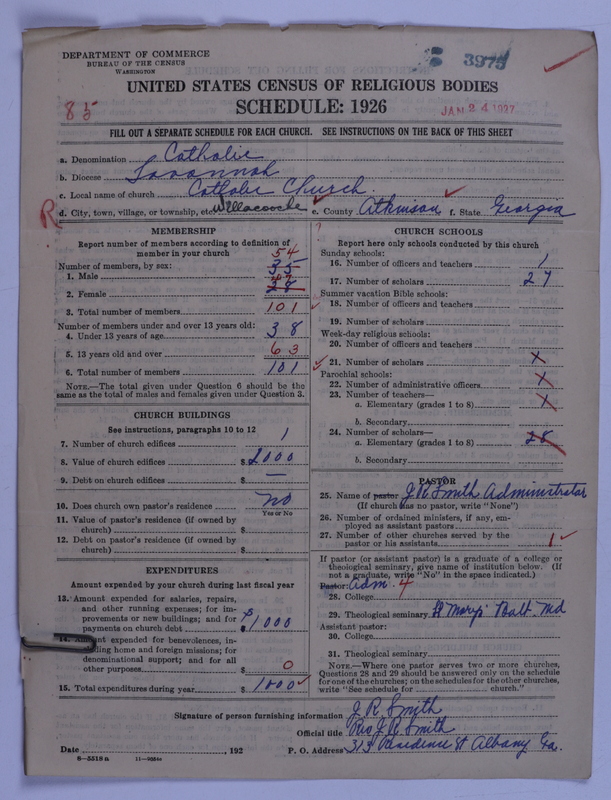 DEPARTMENT OF COMMERCE
BUREAU OF THE CENSUS
WASHINGTON
3975
UNITED STATES CENSUS OF RELIGIOUS BODIES
SCHEDULE: 1926
85
JAN 24 1927
FILL OUT A SEPARATE SCHEDULE FOR EACH CHURCH. SEE INSTRUCTIONS ON THE BACK OF THIS SHEET
a. Denomination Catholic
b. Diocese Savannah
c. Local name of church Catholic Church.
R d. City, town, village, or township, etc. Willacoochee e. County Atkinson f. State Georgia
MEMBERSHIP
Report number of members according to definition of
member in your church
Number of members, by sex: 54
1. Male 35
2. Female 28
3. Total number of members 101
Number of members under and over 13 years old:
4. Under 13 years of age 38
5. 13 years old and over 63
6. Total number of members 101
NOTE.—The total given under Question 6 should be the
same as the total of males and females given under Question 3.
CHURCH BUILDINGS
See instructions, paragraphs 10 to 12
7. Number of church edifices 1
8. Value of church edifices $ 2000
9. Debt on church edifices $ —
10. Does church own pastor's residence no
Yes or No
11. Value of pastor's residence (if owned by
church) $
12. Debt on pastor's residence (if owned by
church) $
EXPENDITURES
Amount expended by your church during last fiscal year
13. Amount expended for salaries, repairs,
and other running expenses; for im-
provements or new buildings; and for
payments on church debt $ 1000
14. Amount expended for benevolences, in-
cluding home and foreign missions; for
denominational support; and for all
other purposes $ 0
15. Total expenditures during year $ 1000
CHURCH SCHOOLS
Report here only schools conducted by this church
Sunday schools:
16. Number of officers and teachers 1
17. Number of scholars 27
Summer vacation Bible schools:
18. Number of officers and teachers
19. Number of scholars
Week-day religious schools:
20. Number of officers and teachers
21. Number of scholars
Parochial schools:
22. Number of administrative officers
23. Number of teachers—
a. Elementary (grades 1 to 8)
b. Secondary
24. Number of scholars—
a. Elementary (grades 1 to 8) 28
b. Secondary
PASTOR
25. Name of pastor J R Smith Administrator
(If church has no pastor, write "None")
26. Number of ordained ministers, if any, em-
ployed as assistant pastors
27. Number of other churches served by the
pastor or his assistants 1
If pastor (or assistant pastor) is a graduate of a college or
theological seminary, give name of institution below. (If
not a graduate, write "No" in the space indicated.)
Pastor: Adm. 4
28. College
29. Theological seminary St Marys Balt Md
Assistant pastor:
30. College
31. Theological seminary
NOTE.—Where one pastor serves two or more churches,
Questions 28 and 29 should be answered only on the schedule
for one of the churches; on the schedules for the other churches,
write "See schedule for church."
Signature of person furnishing information J R Smith
Official title Rev J R Smith
Date 192 P. O. Address 313 Residence St Albany Ga.
6—5518a 11—9034c